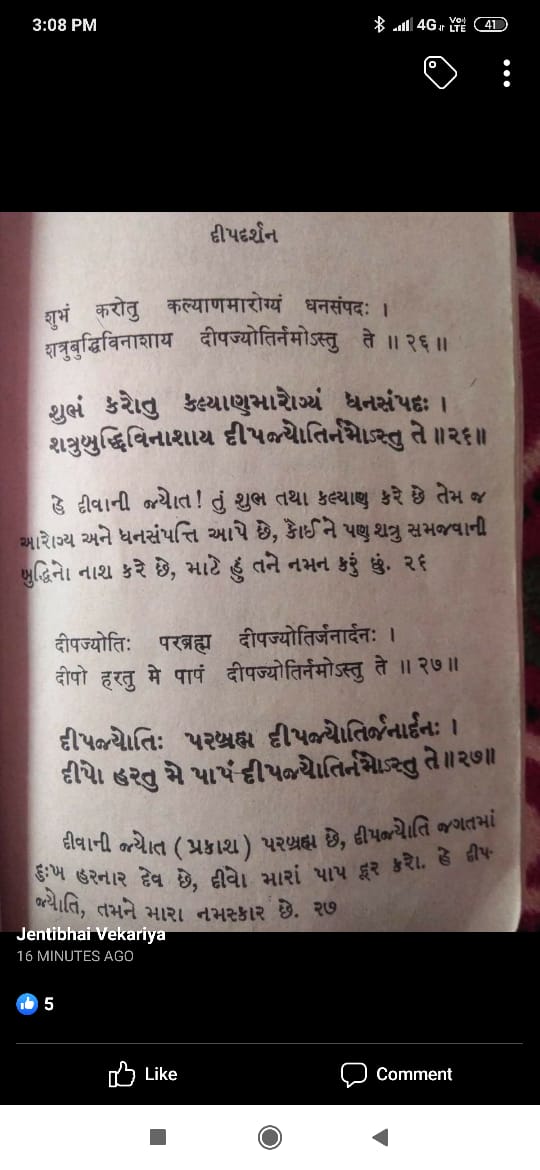 3:08 PM
4G Vo) LTE 41
દીપદર્શન
शुभं करोतु कल्याणमारोग्यं धनसंपदः ।
शत्रुबुद्धिविनाशाय दीपज्योतिर्नमोऽस्तु ते ॥ २६॥
શુભં કરોતુ કલ્યાણમારોગ્યં ધનસંપદઃ ।
શત્રુબુદ્ધિવિનાશાય દીપજ્યોતિર્નમોઽસ્તુ તે ॥૨૬॥
હે દીવાની જ્યોત! તું શુભ તથા કલ્યાણ કરે છે તેમ જ
આરોગ્ય અને ધનસંપત્તિ આપે છે, કોઈ ને પણ શત્રુ સમજવાની
બુદ્ધિનો નાશ કરે છે, માટે હું તને નમન કરું છું. ૨૬
दीपज्योतिः परब्रह्म दीपज्योतिर्जनार्दनः ।
दीपो हरतु मे पापं दीपज्योतिर्नमोऽस्तु ते ॥ २७॥
દીપજ્યોતિઃ પરબ્રહ્મ દીપજ્યોતિર્જનાર્દનઃ ।
દીપો હરતુ મે પાપં દીપજ્યોતિર્નમોઽસ્તુ તે ॥૨૭॥
દીવાની જ્યોત ( પ્રકાશ ) પરબ્રહ્મ છે, દીપજ્યોતિ જગતમાં
દુઃખ હરનાર દેવ છે, દીવો મારાં પાપ દૂર કરો. હે દીપ-
જ્યોતિ, તમને મારા નમસ્કાર છે. ૨૭
Jentibhai Vekariya
16 MINUTES AGO
5
Like Comment